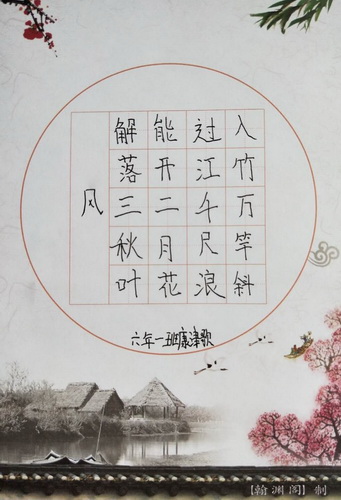 风
解落三秋叶
能开二月花
过江千尺浪
入竹万竿斜
六年一班康津歌
【翰渊阁】制